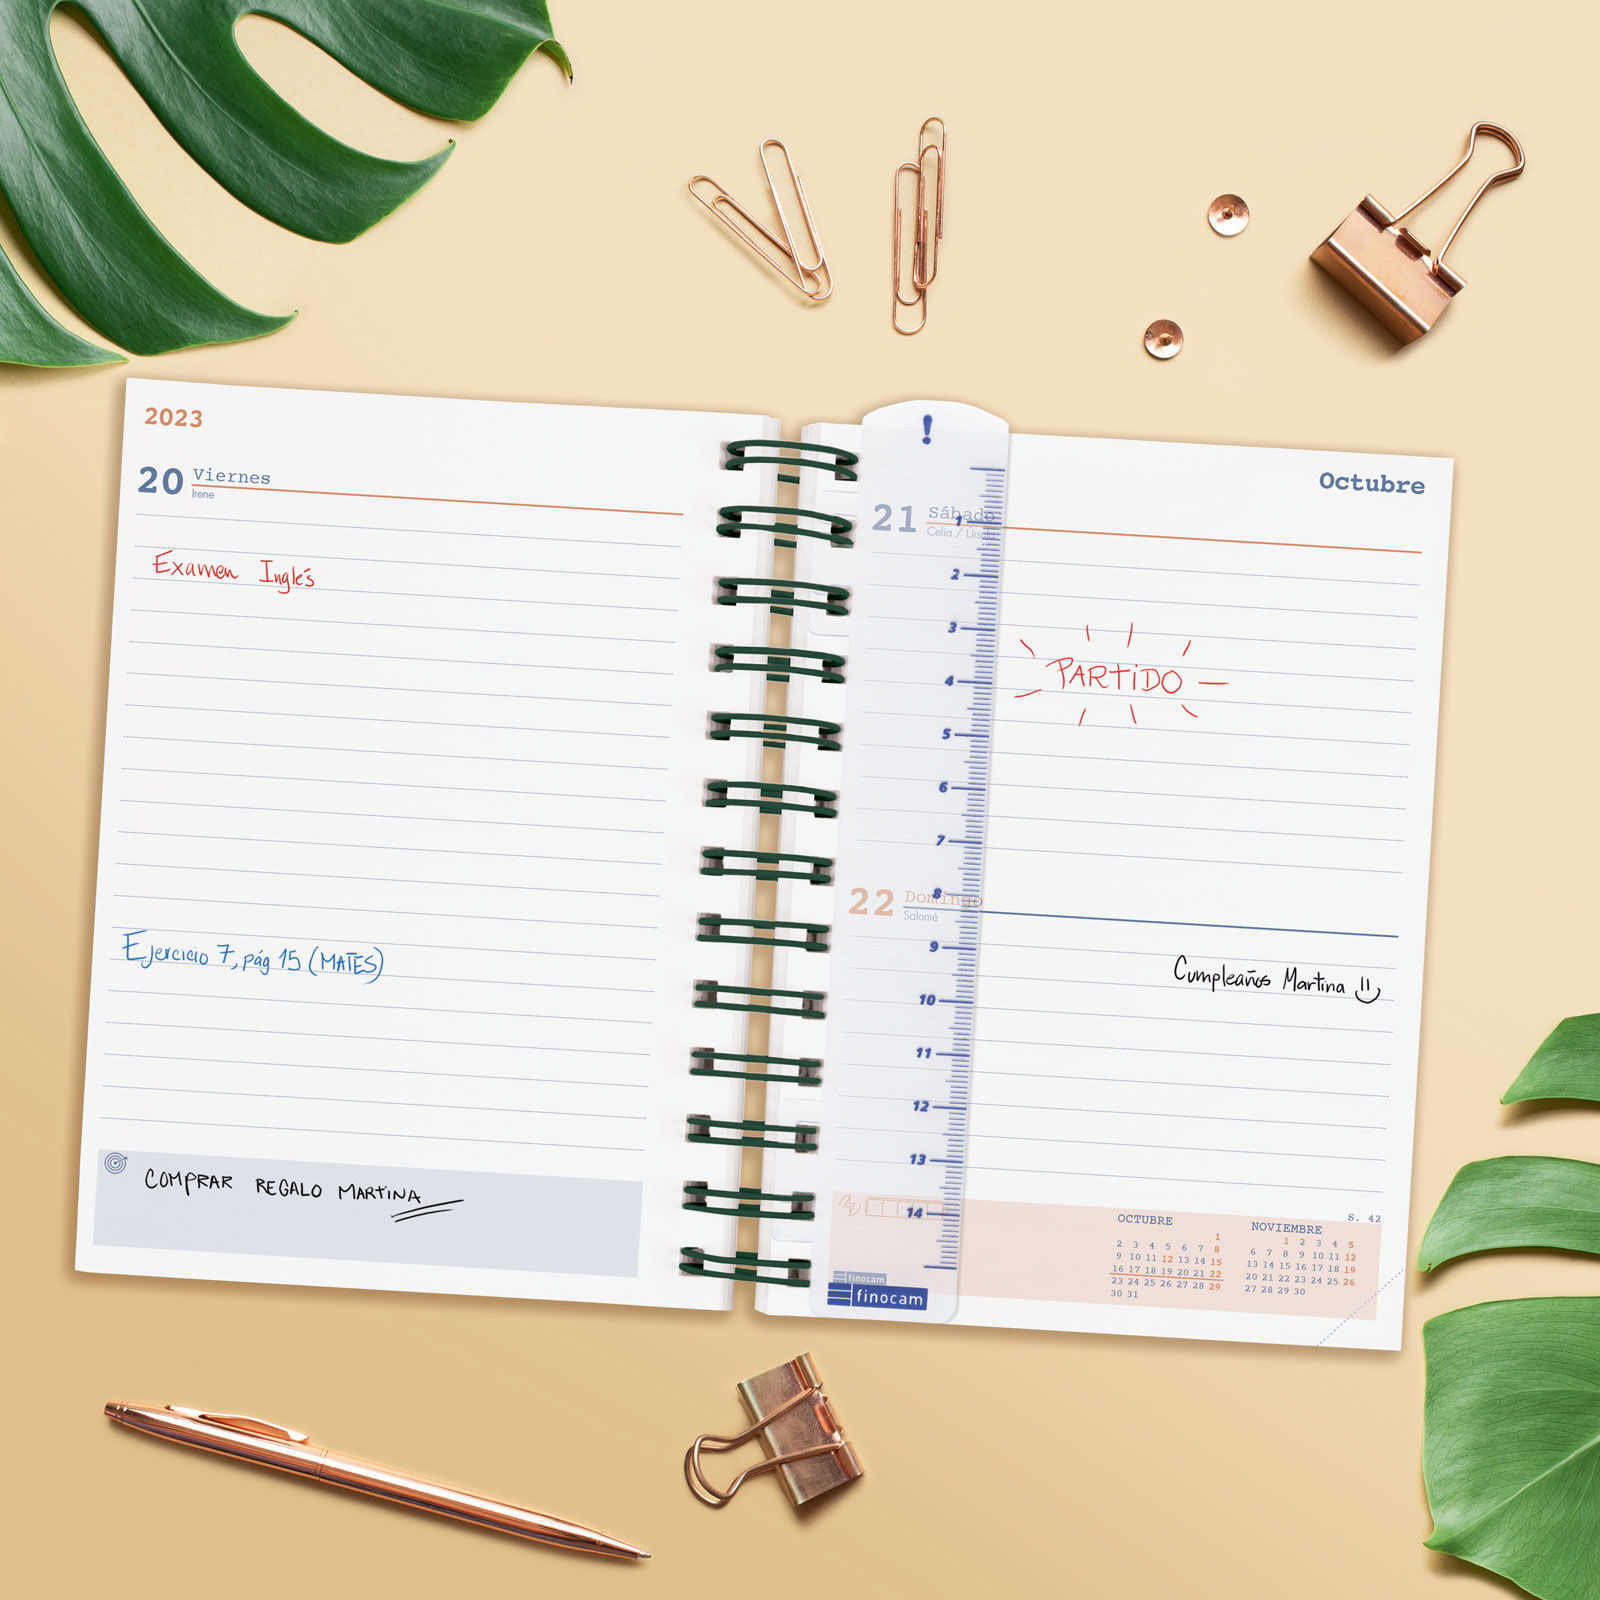 2023
20 Viernes
Irene
Examen Inglés
Ejercicio 7, pág 15 (MATES)
COMPRAR REGALO MARTINA
!
Octubre
21 Sábado
Celia / Úrsula
1
2
3
PARTIDO
4
5
6
7
8
22 Domingo
Salomé
9
Cumpleaños Martina
10
11
12
13
14
S. 42
OCTUBRE
1
2 3 4 5 6 7 8
9 10 11 12 13 14 15
16 17 18 19 20 21 22
23 24 25 26 27 28 29
30 31
NOVIEMBRE
1 2 3 4 5
6 7 8 9 10 11 12
13 14 15 16 17 18 19
20 21 22 23 24 25 26
27 28 29 30
finocam
finocam